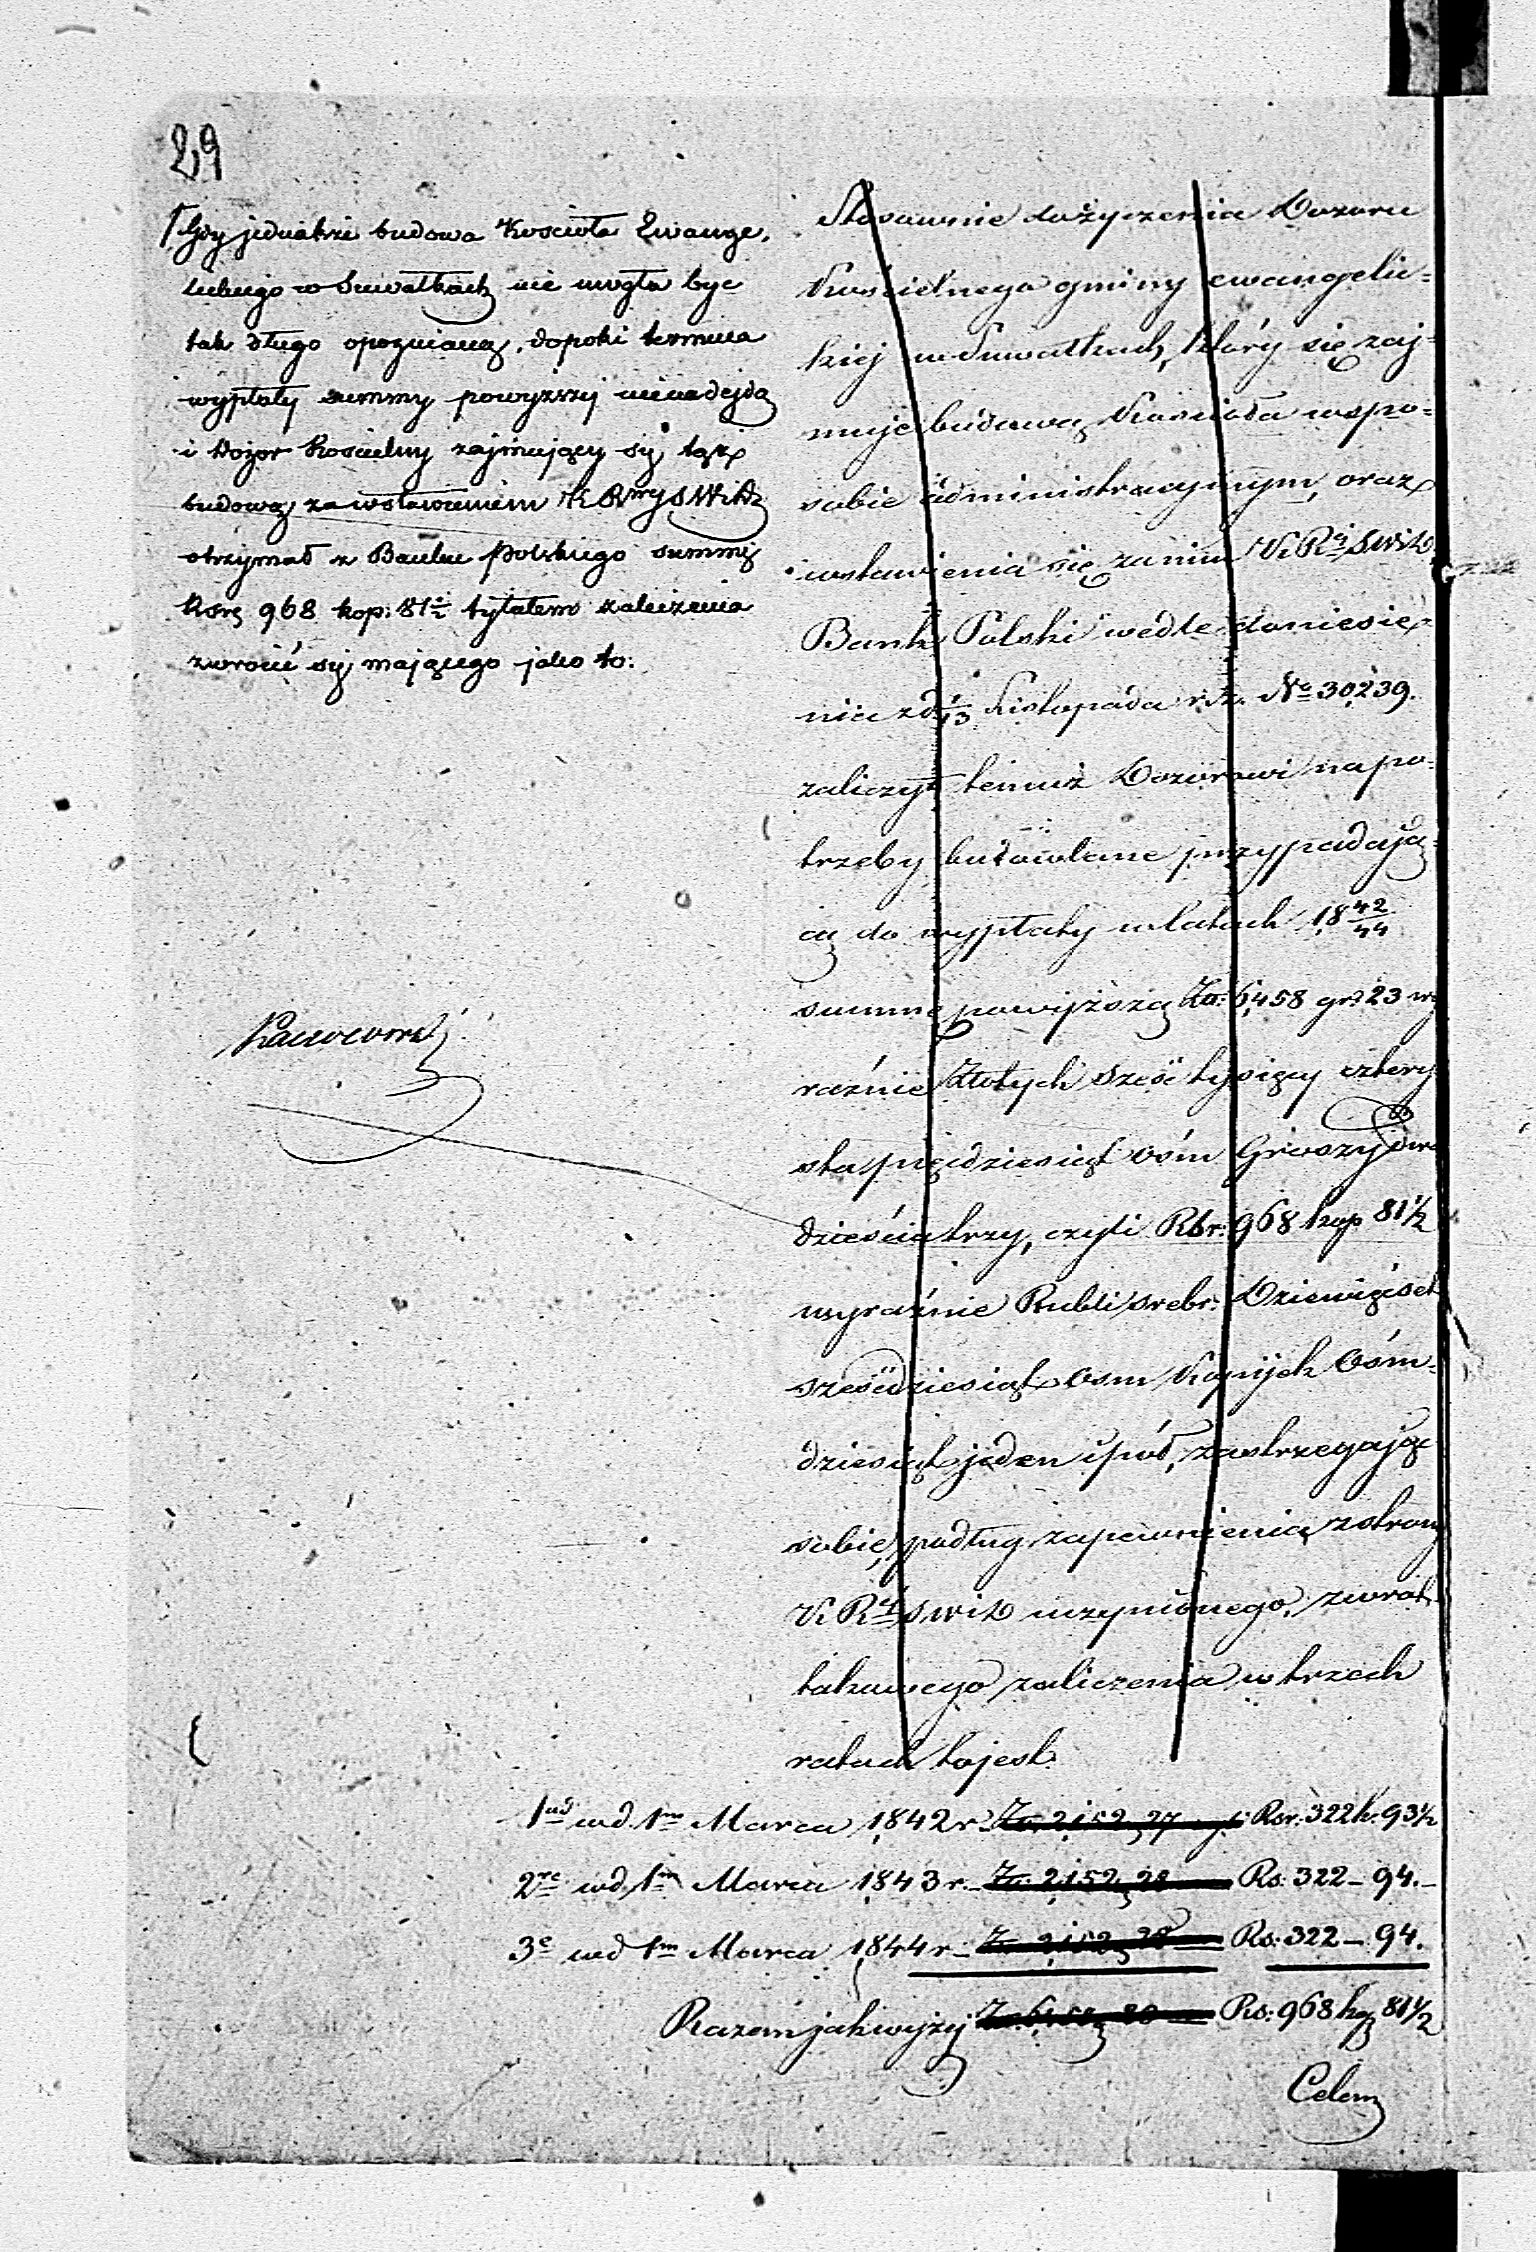 29
Gdy jednakże budowa Kościoła Ewange,
lickiego w Suwałkach nie mogła być
tak długo opóznianą, dopoki termina
wypłaty summy powyzszej nienadejdą
i Dozor Kościelny zajmujący się tąż
budową za wstawieniem KRząySWiD
otrzymał z Banku Polskiego summę
Rsrę 968 kop: 81½ tytułem zaliczenia
zwrócić się mającego jako to:
Stosownie do życzenia Dozoru
Kościelnego gminy ewangelic=
kiej w Suwałkach, który się zaj=
muje budową Kościoła w spo=
sobie administracyjnym, oraz
wstawienia się za nim K.R.SWiD
Bank Polski wedle doniesie=
nia z d 1/13 Listopada r.z. No 30,239.
zaliczył temuż Dozorowi na po=
trzeby budowlane przypadają=
cą do wypłaty w latach 18 42/44
summę powyższą Zł: 6,458 gr: 23 wy
raźnie Złotych sześć tysięcy cztery
sta pięćdziesiąt ośm Groszy dwa
dzieścia trzy, czyli Rbr: 968 kop 81½
wyraźnie Rubli srebr: Dziewięćset
sześćdziesiąt osm Kopijek Ośm=
dziesiąt jeden i pół, zastrzegając
sobie, podług zapewnienia z strony
K.R.SWiD uczynionego, zwrot
takowego zaliczenia w trzech
ratach to jest.
1ną w d. 1m Marca 1842 r. Zł. 2,152, 27 Rsr. 322 k. 93½
2gą w d. 1m Marca 1843 r. Zł. 2,152, 28 Rs: 322 – 94.
3ę w d 1m Marca 1844 r Zł 2,152, 28 Rs: 322 – 94.
Razem jak wyżej Zł. 6,458 Rs: 968 kop 81½
Celem